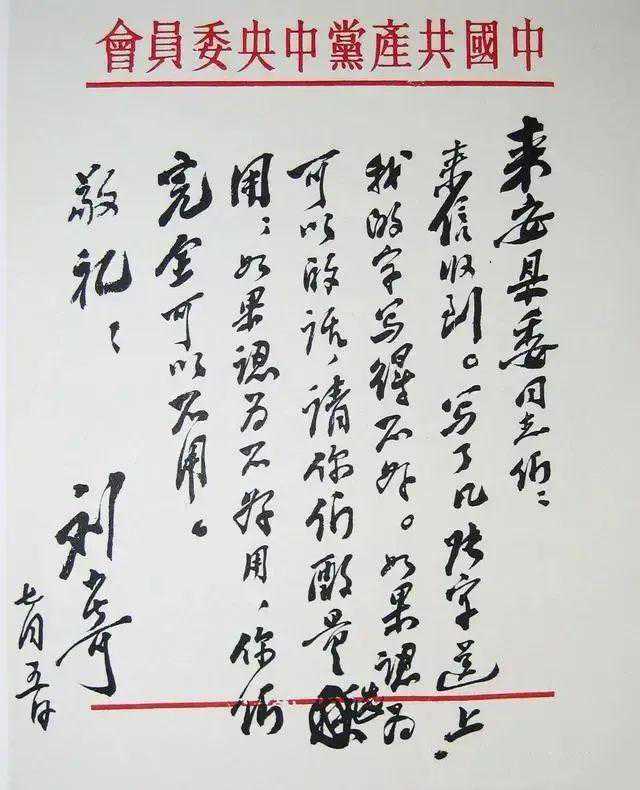 中國共產黨中央委員會
来安县委同志们：
来信收到。写了几张字送上.
我的字写得不好。如果認为
可以的话，请你们酌量选
用；如果認为不好用，你们
完全可以不用。
敬礼！
刘少奇
七月五日